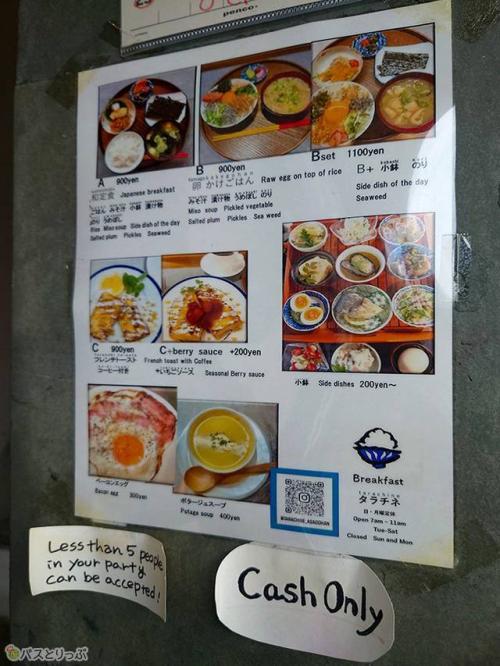 penco.
A 900yen
和定食 Japanese breakfast
ごはん みそ汁 小鉢 漬け物
のり うめぼし
Rise Miso soup Side dish of the day
Salted plum Pickles Seaweed
B 900yen
卵かけごはん Raw egg on top of rice
みそ汁 漬け物 うめぼし のり
Miso soup Pickled vegetable
Salted plum Pickles Sea weed
Bset 1100yen
B+ 小鉢 のり
Side dish of the day
Seaweed
C 900yen
フレンチトースト
コーヒー付き
C+berry sauce +200yen
French toast with Coffee
+いちごソース Seasonal Berry sauce
小鉢 Side dishes 200yen~
ベーコンエッグ
Bacon egg 300yen
ポタージュスープ
Potage soup 400yen
Breakfast
tarachine
タラチネ
日・月曜定休
Open 7am-11am
Tue-Sat
Closed Sun and Mon
Less than 5 people
in your party
can be accepted!
Cash Only
バスとりっぷ